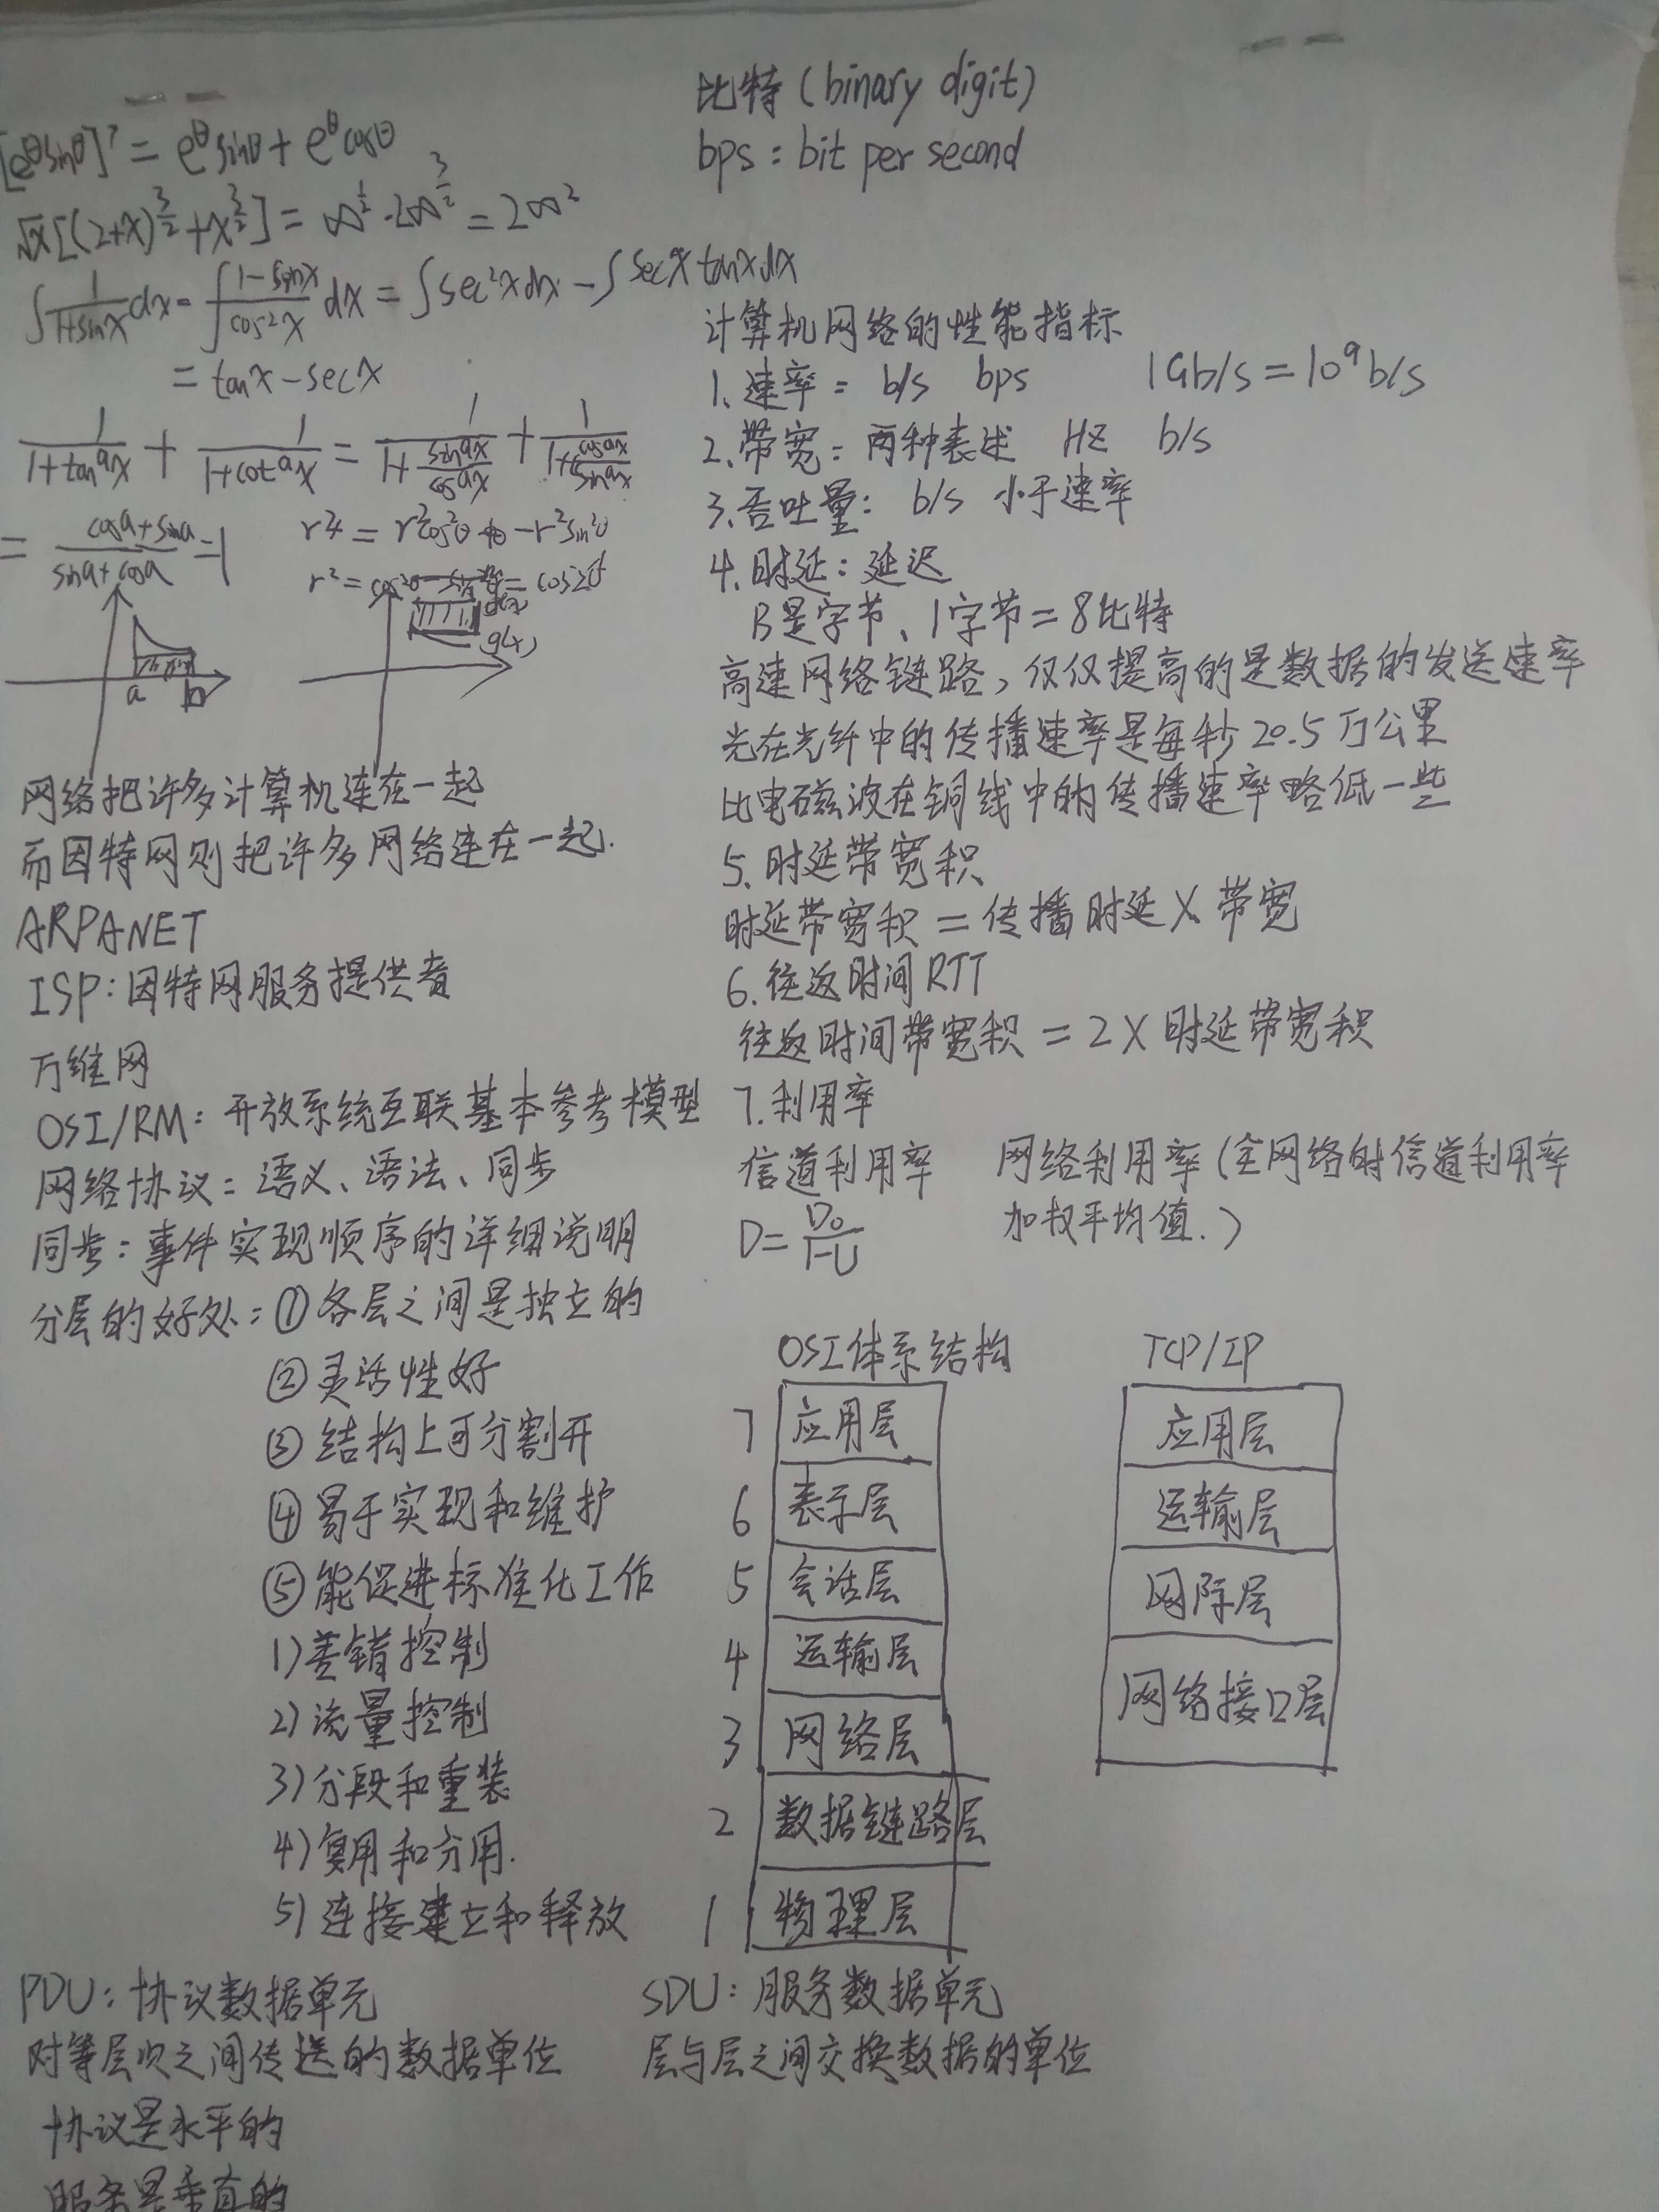 [e^θsinθ]' = e^θsinθ + e^θcosθ
√x[(2+x)^{3/2}+x^{3/2}] = ∞^{1/2}·2∞^{3/2} = 2∞²
∫1/(1+sinx)dx = ∫(1-sinx)/(cos²x) dx = ∫sec²xdx - ∫secx tanxdx
= tanx - secx
1/(1+tan^a x) + 1/(1+cot^a x) = 1/(1+sin^a x/cos^a x) + 1/(1+cos^a x/sin^a x)
= (cosa+sina)/(sina+cosa) = 1
r^4 = r²cos²θ - r²sin²θ
r² = cos²θ - sin²θ = cos2θ
a b
g(x)
网络把许多计算机连在一起
而因特网则把许多网络连在一起.
ARPANET
ISP:因特网服务提供者
万维网
OSI/RM:开放系统互联基本参考模型
网络协议:语义、语法、同步
同步:事件实现顺序的详细说明
分层的好处:①各层之间是独立的
②灵活性好
③结构上可分割开
④易于实现和维护
⑤能促进标准化工作
1)差错控制
2)流量控制
3)分段和重装
4)复用和分用.
5)连接建立和释放
PDU:协议数据单元
对等层次之间传送的数据单位
协议是水平的
服务是垂直的
比特(binary digit)
bps:bit per second
计算机网络的性能指标
1、速率: b/s bps 1Gb/s=10⁹b/s
2、带宽:两种表述 HZ b/s
3、吞吐量: b/s 小于速率
4、时延:延迟
B是字节、1字节=8比特
高速网络链路,仅仅提高的是数据的发送速率
光在光纤中的传播速率是每秒20.5万公里
比电磁波在铜线中的传播速率略低一些
5、时延带宽积
时延带宽积=传播时延X带宽
6、往返时间RTT
往返时间带宽积=2X时延带宽积
7.利用率
信道利用率 网络利用率(全网络的信道利用率
加权平均值.)
D=D₀/(1-U)
OSI体系结构
7 应用层
6 表示层
5 会话层
4 运输层
3 网络层
2 数据链路层
1 物理层
TCP/IP
应用层
运输层
网际层
网络接口层
SDU:服务数据单元
层与层之间交换数据的单位